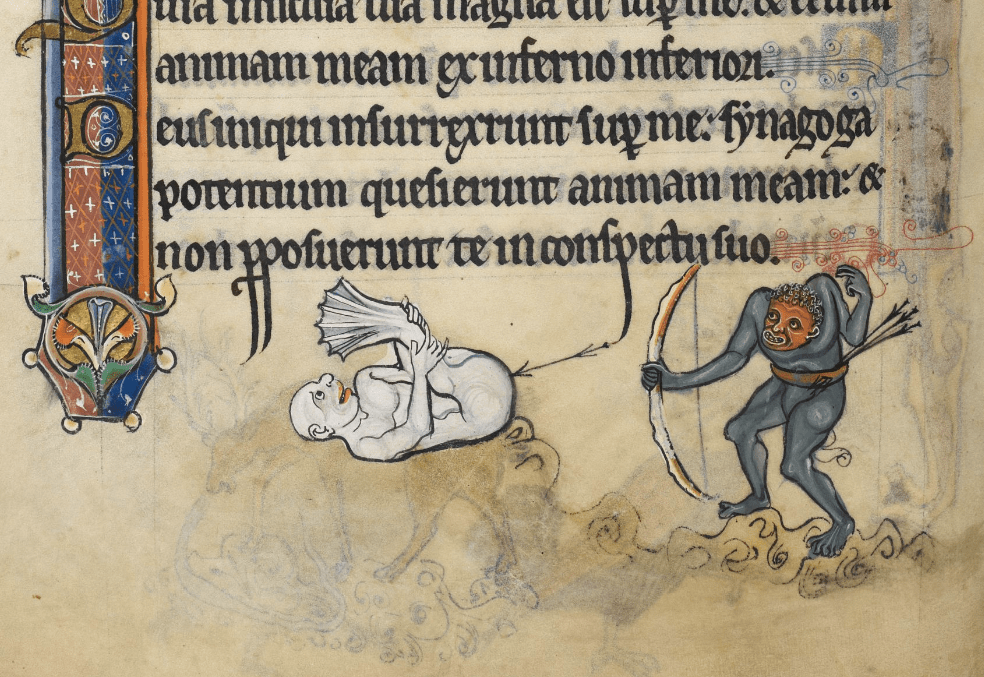 uia tua magna est suꝑ me. & eruisti
animam meam ex inferno inferiori.
Deus iniqui insurrexerunt suꝑ me: synagoga
potentium quesierunt animam meam: &
non ꝓposuerunt te in conspectu suo.